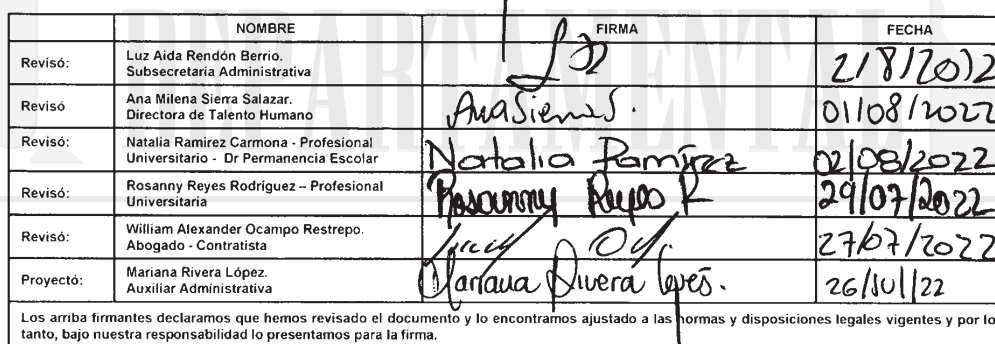 DEPARTAMENTAL
NOMBRE FIRMA FECHA
Revisó: Luz Aida Rendón Berrio.
Subsecretaria Administrativa 2/8/2012
Revisó Ana Milena Sierra Salazar.
Directora de Talento Humano AnaSierraS. 01/08/2022
Revisó: Natalia Ramírez Carmona - Profesional
Universitario - Dr Permanencia Escolar Natalia Ramírez 02/08/2022
Revisó: Rosanny Reyes Rodríguez – Profesional
Universitaria Rosanny Reyes R 29/07/2022
Revisó: William Alexander Ocampo Restrepo.
Abogado - Contratista 27/07/2022
Proyectó: Mariana Rivera López.
Auxiliar Administrativa Mariana Rivera López. 26/Jul/22
Los arriba firmantes declaramos que hemos revisado el documento y lo encontramos ajustado a las normas y disposiciones legales vigentes y por lo
tanto, bajo nuestra responsabilidad lo presentamos para la firma.